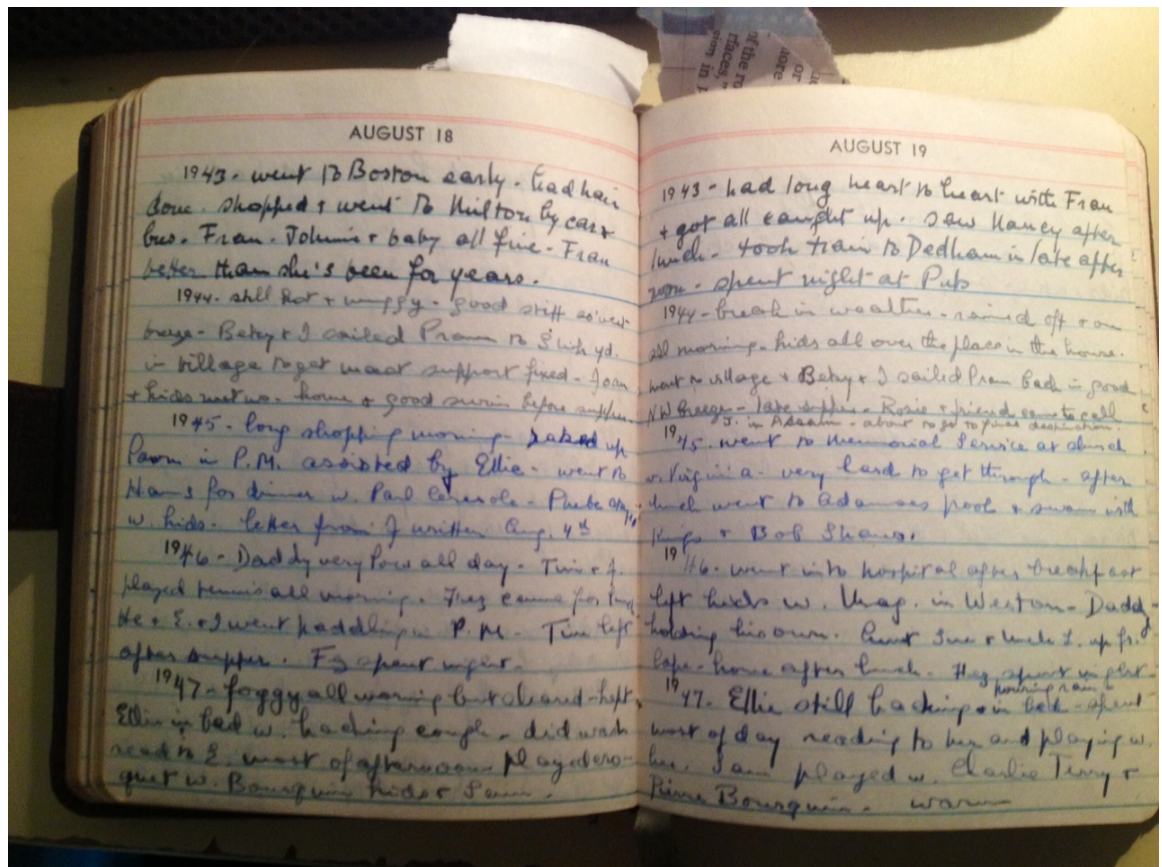 of the ro
rfaces,
sion in
or
more
AUGUST 18
1943 - went to Boston early - had hair
done. shopped + went to Milton by car +
bus. Fran. Johnnie + baby all fine - Fran
better than she's been for years.
1944 - still hot + muggy - good stiff so'west
breeze - Betsy + I sailed Pram to yd.
in village to get mast support fixed - Joan
+ kids met us - home + good swim before supper
1945 - long shopping morning - up
in P.M. assisted by Ellie - went to
Ham's for dinner w. Paul - Phebe
w. kids - letter from J written Aug. 4th
1946 - Daddy very low all day - Tim + J.
played tennis all morning. came for lunch
He + E. + I went paddling in P.M. - Tim left
after supper. spent night -
1947 - foggy all morning but cleared - kept
Ellie in bed w. hacking cough - did wash
read to E. most of afternoon played cro-
quet w. Bourquin kids + Sam.
AUGUST 19
1943 - had long heart to heart with Fran
+ got all caught up. saw Nancy after
lunch - took train to Dedham in late after
noon - spent night at Pub
1944 - break in weather - rained off + on
all morning - kids all over the place in the house.
went to village + Betsy + I sailed Pram back in good
N.W breeze - late supper - Rosie + friend came to call
J. in Assam - about to go to final destination -
1945 - went to Memorial Service at church
w. Virginia - very hard to get through - after
lunch went to Adamses pool + swam with
Kings + Bob Shaws.
1946 - went into hospital after breakfast
left kids w. in Weston - Daddy
holding his own. Aunt Sue + Uncle L. up fr.
Cape - home after lunch - spent night -
pouring rain -
1947. Ellie still hacking + in bed - spent
most of day reading to her and playing w.
her. Sam played w. Charlie Terry +
Pierre Bourquin - warm